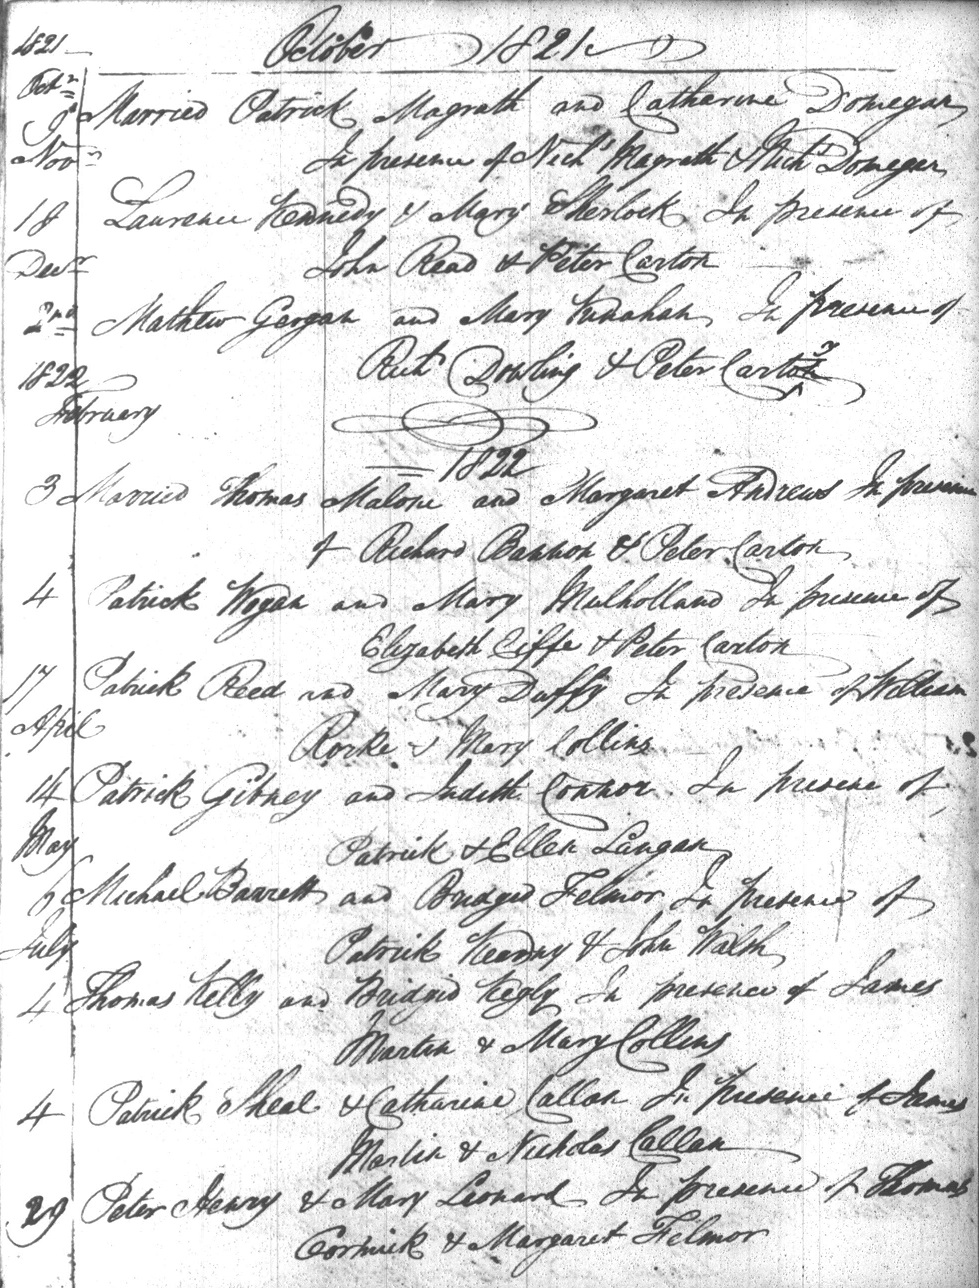 1821 October 1821
Octr
8 Married Patrick Magrath and Catharine Domegan
Novr In presence of Nichs Magrath & Richd Domegan
18 Laurence Kennedy & Mary Sherlock In presence of
Decr John Read & Peter Carton
2nd Mathew Gergan and Mary Kinahan In presence of
Richd Dowling & Peter Carton
1822
February
1822
3 Married Thomas Malone and Margaret Andrews In presence
of Richard Bannon & Peter Carton
4 Patrick Wogan and Mary Mulholland In presence of
Elizabeth Eiffe & Peter Carton
17 Patrick Reed and Mary Duffy In presence of William
April Rorke & Mary Collins
14 Patrick Gibney and Judith Connor In presence of
May Patrick & Ellen Langan
6 Michael Barrett and Bridgid Felmor In presence of
July Patrick Kearny & John Walsh
4 Thomas Kelly and Bridgid Kegly In presence of James
Martin & Mary Collins
4 Patrick Sheal & Catharine Callan In presence of James
Martin & Nicholas Callan
29 Peter Henry & Mary Leonard In presence of Thomas
Cormick & Margaret Felmor